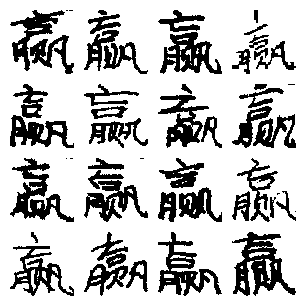 赢赢赢赢
赢赢赢赢
赢赢赢赢
赢赢赢赢